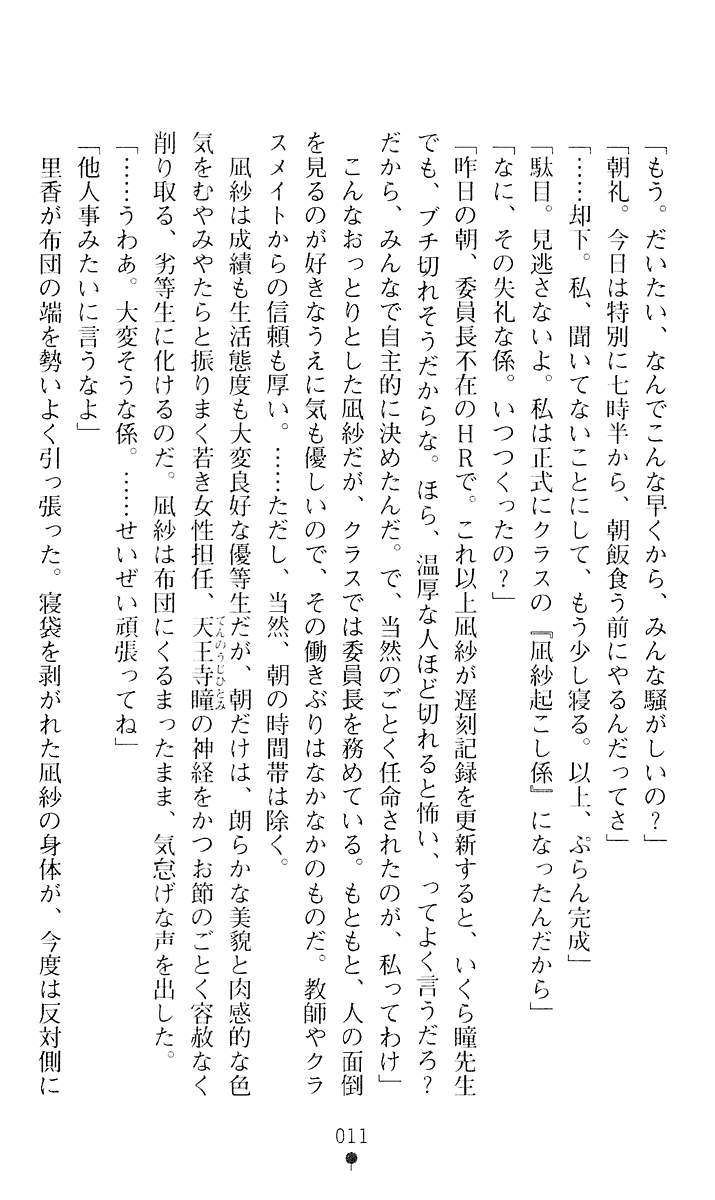 「もう。だいたい、なんでこんな早くから、みんな騒がしいの？」
「朝礼。今日は特別に七時半から、朝飯食う前にやるんだってさ」
「……却下。私、聞いてないことにして、もう少し寝る。以上、ぷらん完成」
「駄目。見逃さないよ。私は正式にクラスの『凪紗起こし係』になったんだから」
「なに、その失礼な係。いつつくったの？」
「昨日の朝、委員長不在のＨＲで。これ以上凪紗が遅刻記録を更新すると、いくら瞳先生
でも、ブチ切れそうだからな。ほら、温厚な人ほど切れると怖い、ってよく言うだろ？
だから、みんなで自主的に決めたんだ。で、当然のごとく任命されたのが、私ってわけ」
　こんなおっとりとした凪紗だが、クラスでは委員長を務めている。もともと、人の面倒
を見るのが好きなうえに気も優しいので、その働きぶりはなかなかのものだ。教師やクラ
スメイトからの信頼も厚い。……ただし、当然、朝の時間帯は除く。
　凪紗は成績も生活態度も大変良好な優等生だが、朝だけは、朗らかな美貌と肉感的な色
気をむやみやたらと振りまく若き女性担任、天王寺瞳（てんのうじひとみ）の神経をかつお節のごとく容赦なく
削り取る、劣等生に化けるのだ。凪紗は布団にくるまったまま、気怠げな声を出した。
「……うわぁ。大変そうな係。……せいぜい頑張ってね」
「他人事みたいに言うなよ」
　里香が布団の端を勢いよく引っ張った。寝袋を剥がれた凪紗の身体が、今度は反対側に
011